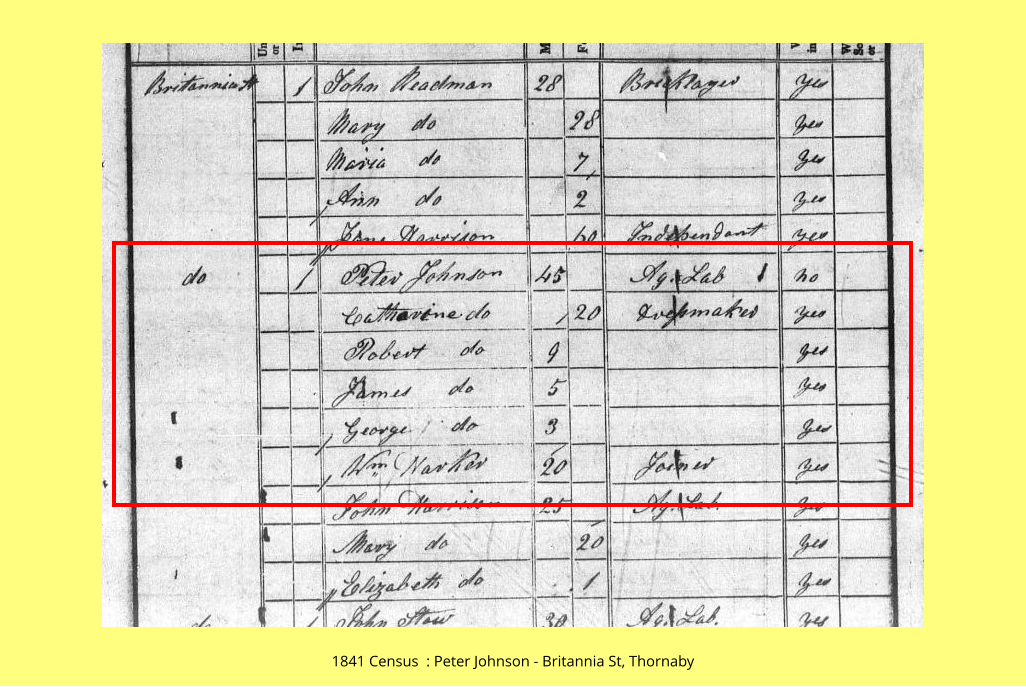 Britannia St 1 John Readman 28 Bricklayer Yes
Mary do 28 Yes
Maria do 7 Yes
Ann do 2 Yes
Jane Harrison 60 Independant Yes
do 1 Peter Johnson 45 Ag. Lab 1 no
Catharine do 20 Dressmaker Yes
Robert do 9 Yes
James do 5 Yes
George do 3 Yes
Wm Harker 20 Joiner Yes
John Harrison 25 Ag. Lab. Yes
Mary do 20 Yes
Elizabeth do 1 Yes
do 1 John Stow 30 Ag. Lab. Yes
1841 Census : Peter Johnson - Britannia St, Thornaby